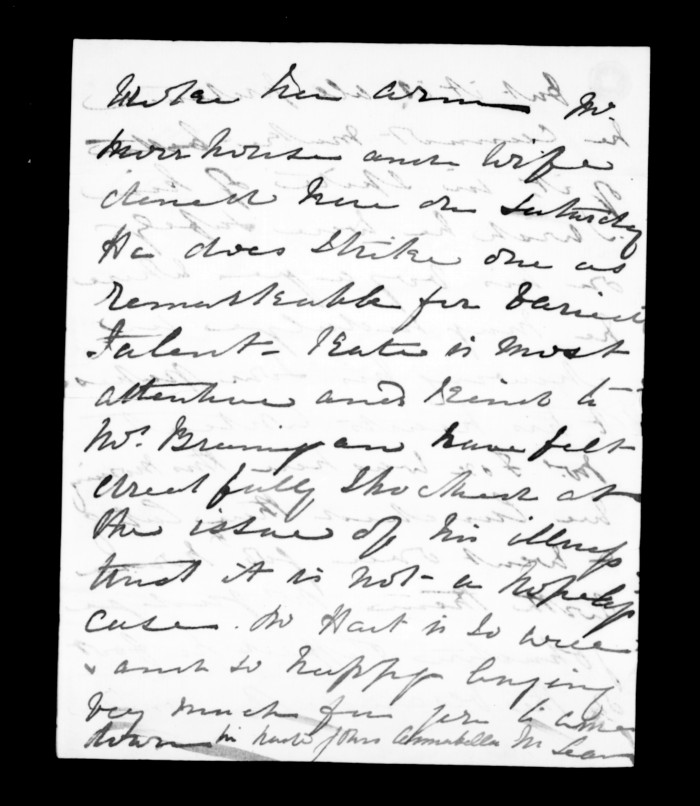 Mr
Moorhouse and Wife
dined here on Saturday
He does strike one as
remarkable for varied
talent - Kate is most
attentive and kind to
Mrs. Branigan have felt
dreadfully shocked at
the issue of his illness
trust it is not a hopeless
case. Hart is so well
and so happy longing
very much for you to come
down in haste yours Annabella McLean